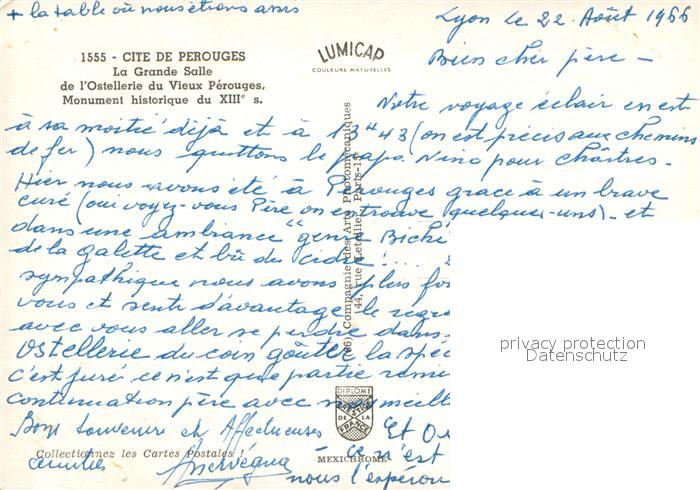 + la table où nous étions assis
Lyon Le 22. Août 1966
1555 - CITE DE PEROUGES
La Grande Salle
de l'Ostellerie du Vieux Pérouges,
Monument historique du XIIIe s.
LUMICAP
COULEURS NATURELLES
Bien cher père -
Notre voyage éclair en est
à sa moitié déjà et à 13H43 (on est précis aux chemins
de fer) nous quittons le papa. Nino pour Chârtres -
Hier nous avons été à Pérouges grace à un brave
curé (oui voyez-vous Père on en trouve quelques-uns) - et
dans une ambiance "genre Biche
de la galette et bû du cidre! ...
sympathique nous avons plus for
vous et senti d'avantage le regr
avec vous aller se perdre dans
Ostellerie du coin goûter la spéc
c'est juré ce n'est que partie remi
continuation père avec nos meill
Bons souvenirs et Affectueuses
amitiés
Et
ce n'est
nous l'espéron
(66) Compagnie des Arts Photomécaniques
44, rue Letellier, Paris-15
DIPLOME
PRESTIGE
DE LA
FRANCE
Collectionnez les Cartes Postales !
MEXICHROME
privacy protection
Datenschutz